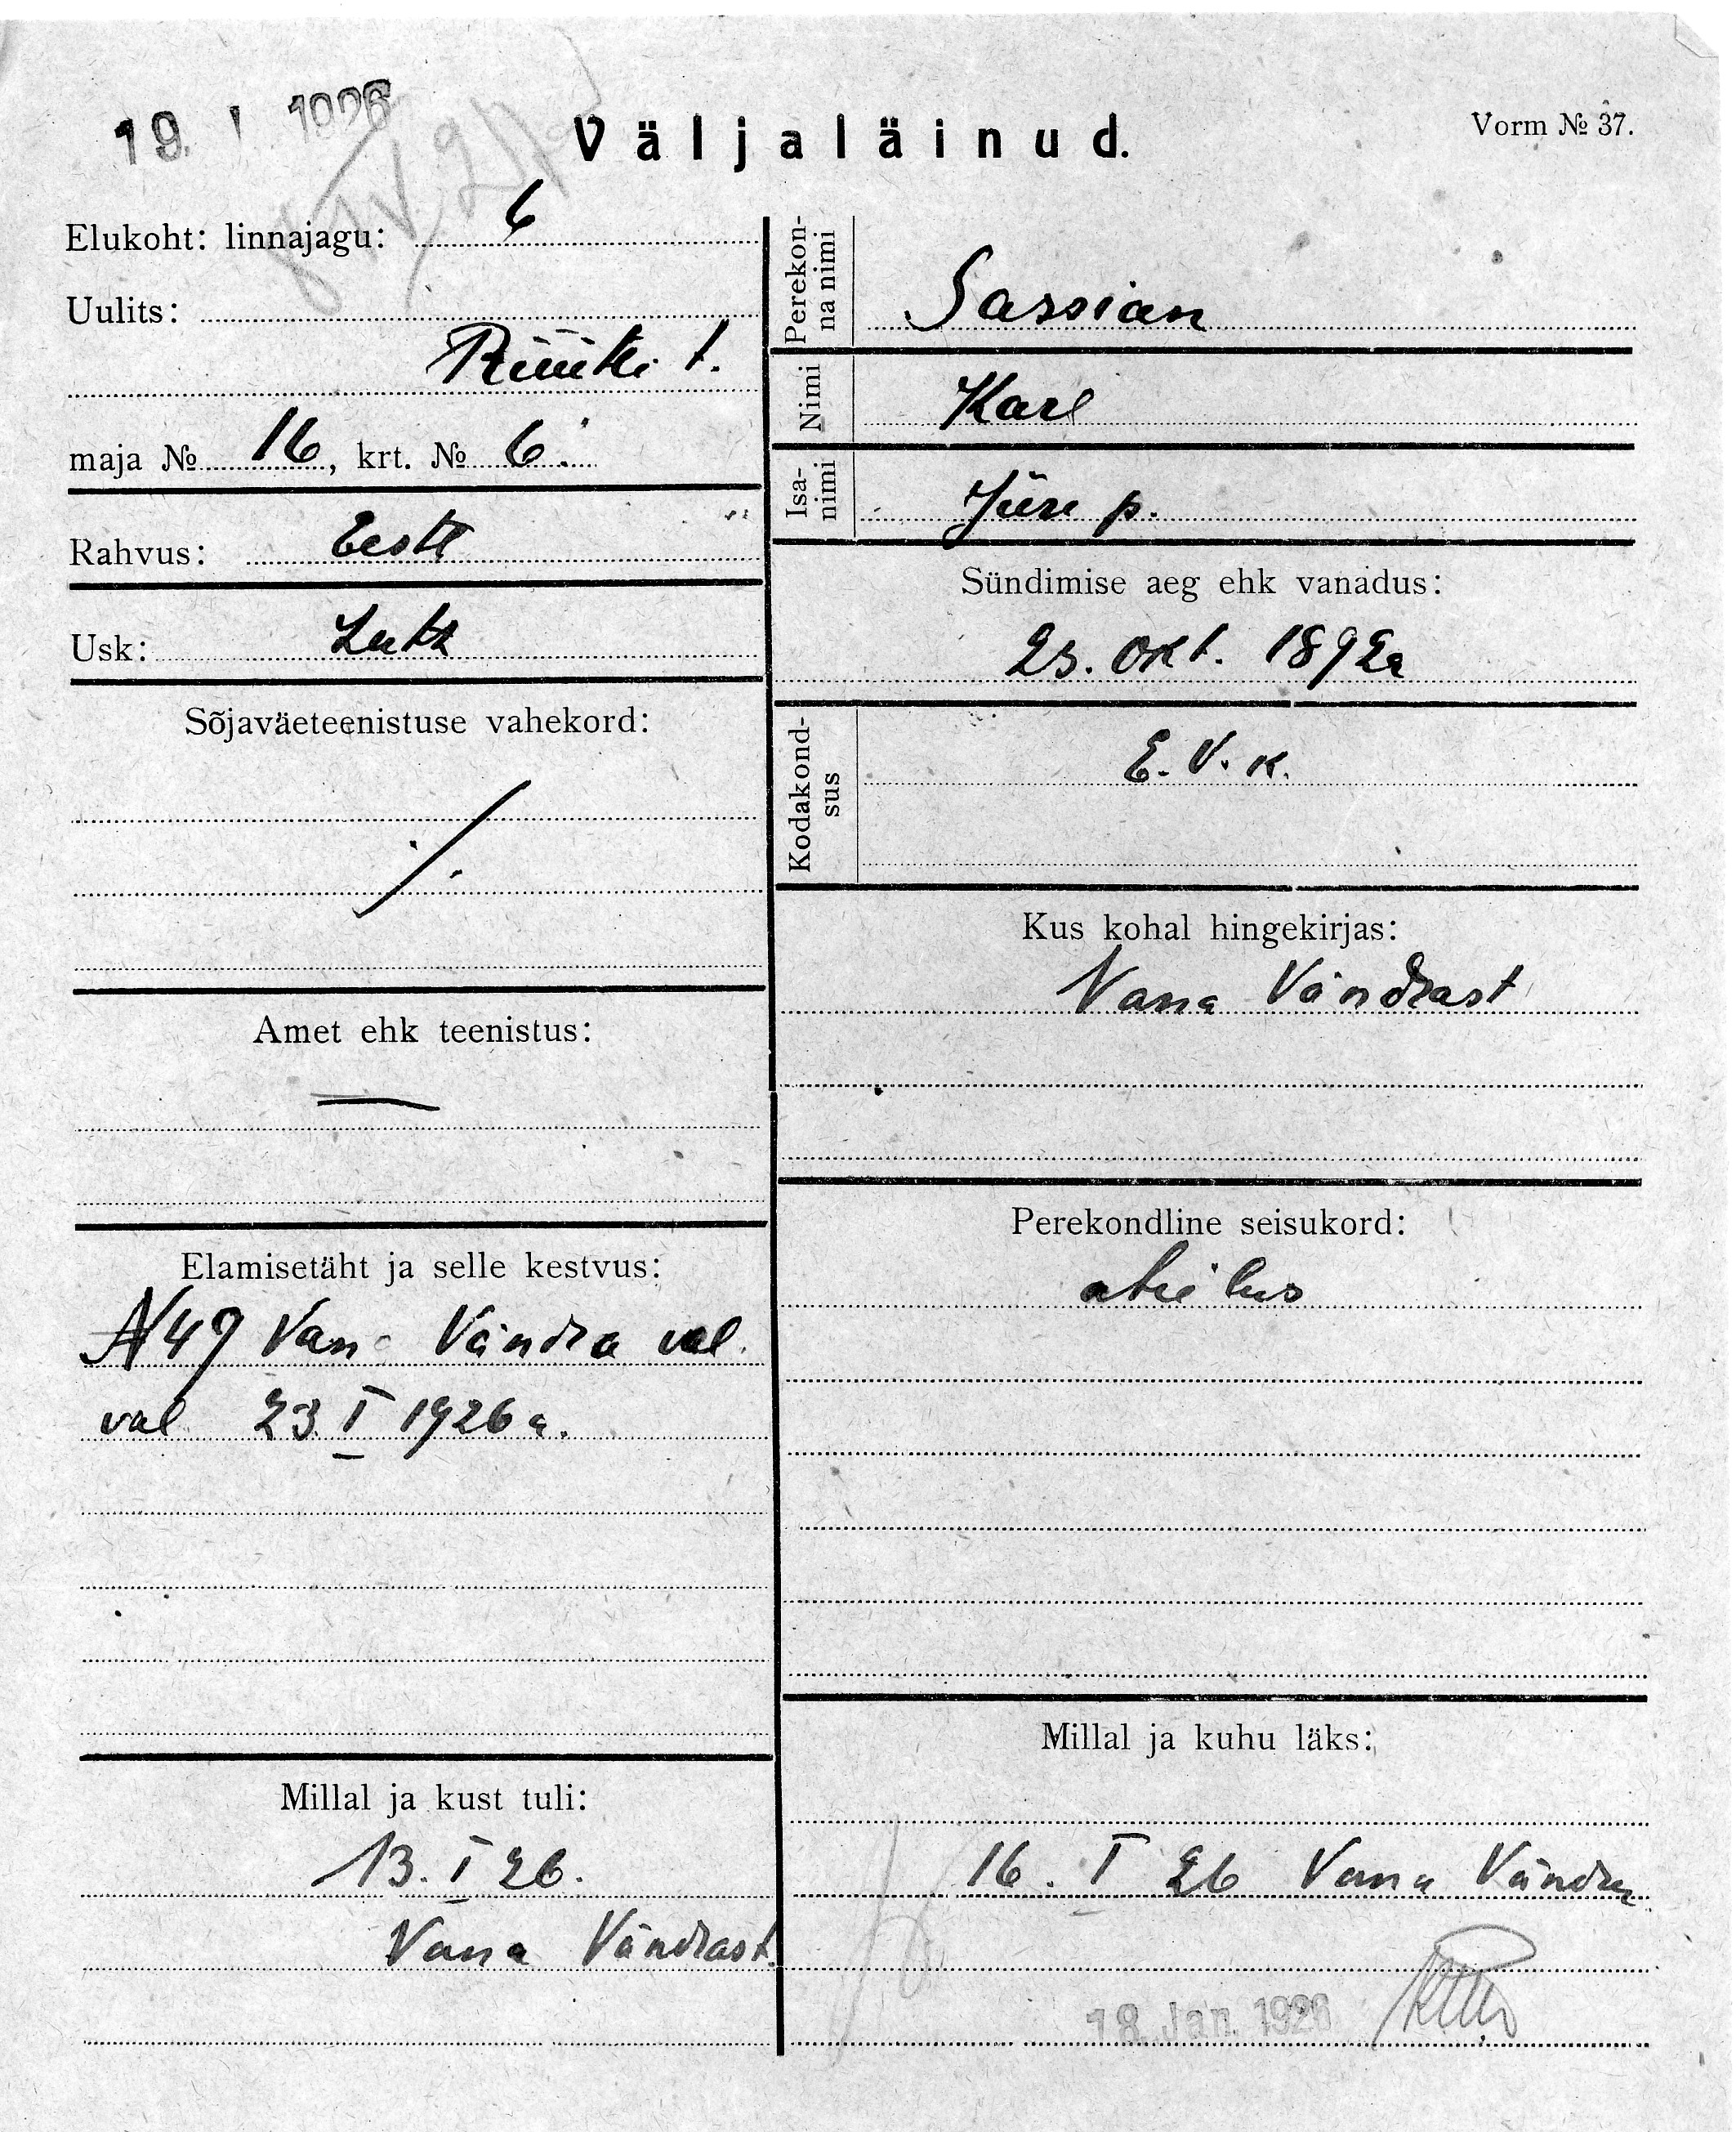 19. I 1926
Väljaläinud.
Vorm № 37.
Elukoht: linnajagu: 6
Uulits:
Rüütli t.
maja № 16, krt. № 6.
Rahvus: Eesti
Usk: Luth
Sõjaväeteenistuse vahekord:
Amet ehk teenistus:
—
Elamisetäht ja selle kestvus:
N49 Vana Vändra val.
val 23 I 1926 a.
Millal ja kust tuli:
13. I 26.
Vana Vändrast.
Perekonna nimi
Sassian
Nimi
Karl
Isanimi
Jüri p.
Sündimise aeg ehk vanadus:
23. okt. 1892a
Kodakondsus
E. V. k.
Kus kohal hingekirjas:
Vana Vändrast
Perekondline seisukord:
abielus
Millal ja kuhu läks:
16. I 26 Vana Vändra
18. Jan. 1926